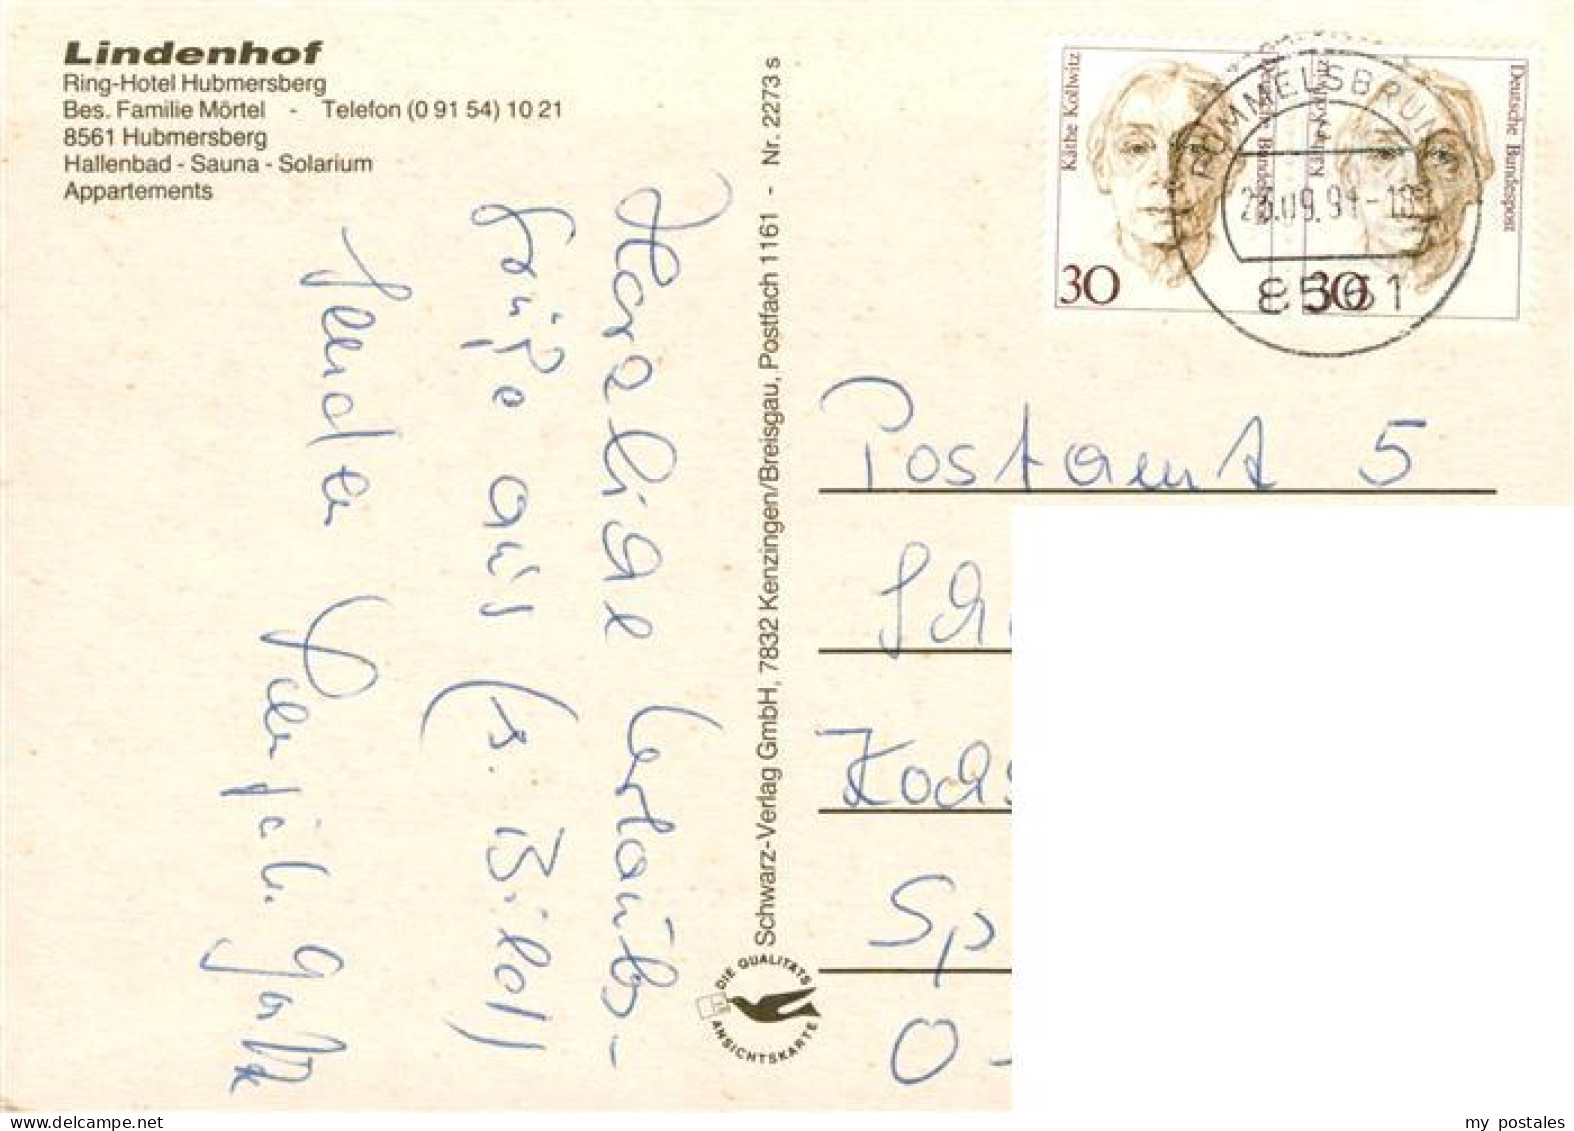 Lindenhof
Ring-Hotel Hubmersberg
Bes. Familie Mörtel - Telefon (0 91 54) 10 21
8561 Hubmersberg
Hallenbad - Sauna - Solarium
Appartements
Herzliche Urlaubs-
grüße aus (s. Bild)
senden
Schwarz-Verlag GmbH, 7832 Kenzingen/Breisgau, Postfach 1161 - Nr. 2273 s
DIE QUALITÄTS
ANSICHTSKARTE
Käthe Kollwitz
Deutsche Bundespost
30
Käthe Kollwitz
Deutsche Bundespost
30
POMMELSBRUNN
.09.91-18
8561
Postamt 5
Sch
Kochs
Sp
O-
my postales